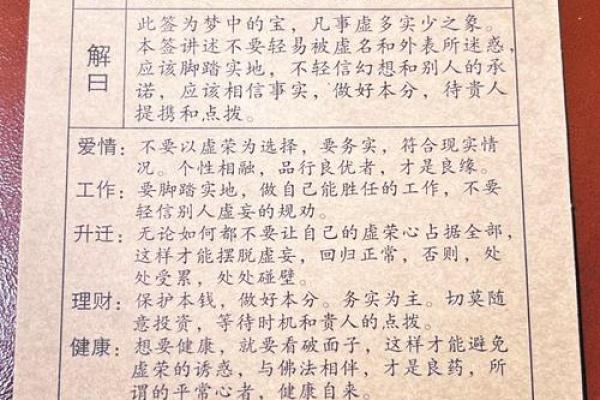 解曰
此签为梦中的宝，凡事虚多实少之象。
本签讲述不要轻易被虚名和外表所迷惑，
应该脚踏实地，不轻信幻想和别人的承
诺，应该相信事实，做好本分，待贵人
提携和点拨。
爱情：不要以虚荣为选择，要务实，符合现实情
况。个性相融，品行良优者，才是良缘。
工作：要脚踏实地，做自己能胜任的工作，不要
轻信别人虚妄的规劝。
升迁：无论如何都不要让自己的虚荣心占据全部，
这样才能摆脱虚妄，回归正常，否则，处
处受累，处处碰壁。
理财：保护本钱，做好本分。务实为主。切莫随
意投资，等待时机和贵人的点拨。
健康：想要健康，就要看破面子，这样才能避免
虚荣的诱惑，与佛法相伴，才是良药，所
谓的平常心者，健康自来。